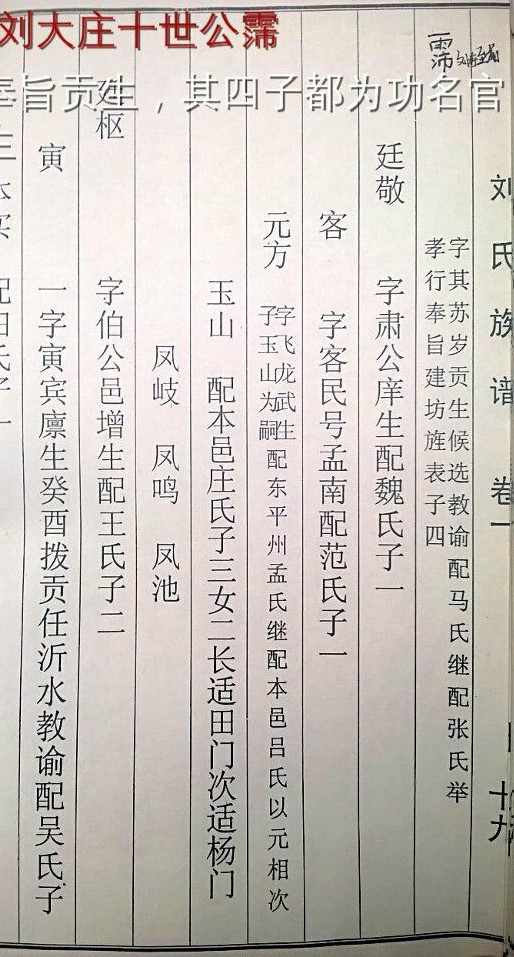 刘大庄十世公霈
奉旨贡生，其四子都为功名官
刘氏族谱 卷一 十九
霈
字其苏岁贡生候选教谕配马氏继配张氏举
孝行奉旨建坊旌表子四
廷敬 字肃公庠生配魏氏子一
客 字客民号孟南配范氏子一
元方 字飞龙武生
子玉山为嗣
配东平州孟氏继配本邑吕氏以元相次
玉山 配本邑庄氏子三女二长适田门次适杨门
凤岐 凤鸣 凤池
廷枢 字伯公邑增生配王氏子二
寅 一字寅宾廪生癸酉拨贡任沂水教谕配吴氏子